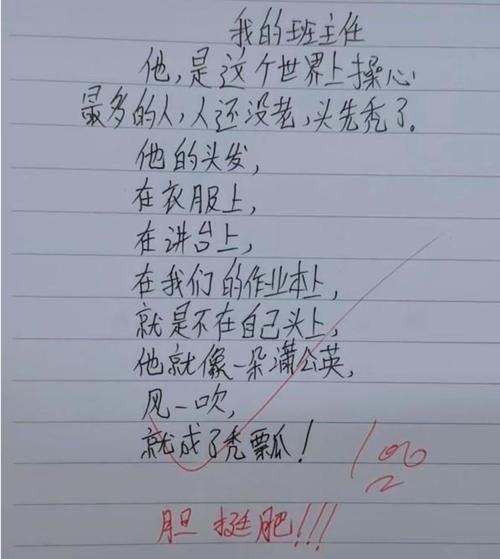 我的班主任
他,是这个世界上操心
最多的人,人还没老,头先秃了。
他的头发,
在衣服上,
在讲台上,
在我们的作业本上,
就是不在自己头上,
他就像一朵蒲公英,
风一吹,
就成了秃瓢瓜!
100
胆挺肥!!!